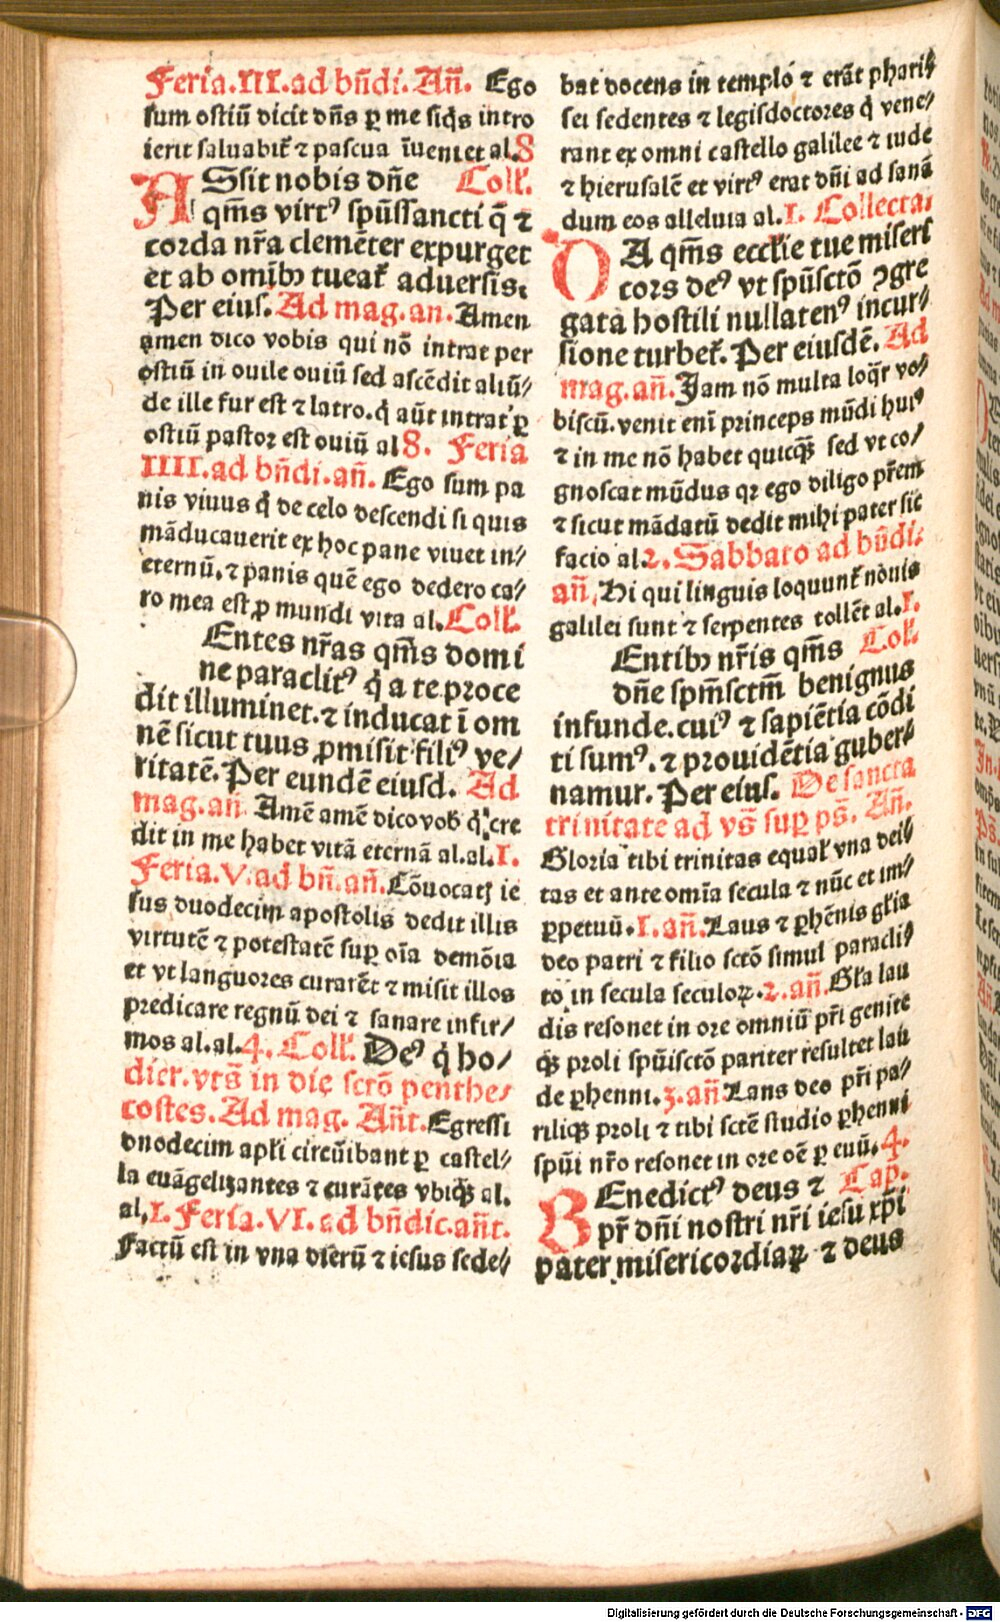 Feria.III.ad bñdi. Añ. Ego
sum ostiũ dicit dñs ꝑ me siq̃s intro
ierit saluabit᷑ ⁊ pascua ĩueniet al.8
ASsit nobis dñe Coll᷑.
qm̃s virtꝰ spũssancti q̃ ⁊
corda nr̃a clemẽter expurget
et ab omĩbꝫ tueat᷑ aduersis.
Per eius. Ad mag. an. Amen
amen dico vobis qui nõ intrat per
ostiũ in ouile ouiũ sed ascẽdit aliũ⸗
de ille fur est ⁊ latro. q̇ aũt intrat ꝑ
ostiũ pastor est ouiũ al 8. Feria
IIII.ad bñdi.añ. Ego sum pa
nis viuus q̇ de celo descendi si quis
mãducauerit ex hoc pane viuet in⸗
eternũ. ⁊ panis quẽ ego dedero ca⸗
ro mea est ꝓ mundi vita al. Coll᷑.
Entes nr̃as qm̃s domi
ne paraclitꝰ q̇ a te proce
dit illuminet. ⁊ inducat ĩ om
nẽ sicut tuus ꝓmisit filiꝰ ve⸗
ritatẽ. Per eundẽ eiusd. Ad
mag. añ Amẽ amẽ dico vob̾ q̇ cre
dit in me habet vitã eternã al.al.1.
Feria.V.ad bñ.añ. Cõuocatꝭ ie
sus duodecim apostolis dedit illis
virtutẽ ⁊ potestatẽ suꝑ oĩa demõia
et vt languores curarẽt ⁊ misit illos
predicare regnũ dei ⁊ sanare infir⸗
mos al.al.4. Coll᷑. Deꝰ q̇ ho⸗
dier. vts̃ in die sctõ penthe⸗
costes. Ad mag. Añt. Egressi
dnodecim apl̃i circũibant ꝑ castel⸗
la euãgelizantes ⁊ curãtes vbiqꝫ al.
al.1. Feria.VI.ad bñdic.añt.
Factũ est in vna dierũ ⁊ iesus sede⸗
bat docens in templo ⁊ erãt phari⸗
sei sedentes ⁊ legisdoctores q̇ vene⸗
rant ex omni castello galilee ⁊ iude
⁊ hierusalẽ et virtꝰ erat dñi ad sanã
dum eos alleluia al.1. Collecta.
DA qm̃s eccl̃ie tue miseri
cors deꝰ vt spũsctõ ꝯgre
gata hostili nullatenꝰ incur⸗
sione turbet᷑. Per eiusdẽ. Ad
mag. añ. Jam nõ multa loq̃r vo⸗
biscũ. venit enĩ princeps mũdi huiꝰ
⁊ in me nõ habet quicqꝫ̃ sed vt co⸗
gnoscat mũdus qꝛ ego diligo pr̃em
⁊ sicut mãdatũ dedit mihi pater sic
facio al.2. Sabbato ad bñdi.
añ. Hi qui linguis loquunt᷑ nouis
galilei sunt ⁊ serpentes tollẽt al.1.
Entibꝫ nr̃is qm̃s Col᷑.
dñe spm̃sctm̃ benignus
infunde. cuiꝰ ⁊ sapiẽtia cõdi
ti sumꝰ. ⁊ prouidẽtia guber⸗
namur. Per eius. De sancta
trinitate ad vs̃ suꝑ ps̃. Añ.
Gloria tibi trinitas equal᷑ vna dei⸗
tas et ante omĩa secula ⁊ nũc et im⸗
ꝑpetuũ. 1. añ. Laus ⁊ ꝑhẽnis gl̃ia
deo patri ⁊ filio sctõ simul paracli⸗
to in secula seculoꝝ. 2. añ. Gl̃a lau
dis resonet in ore omniũ pr̃i genite
qꝫ proli spũisctõ pariter resultet lau
de ꝑhenni. 3. añ Lans deo pr̃i pa⸗
riliqꝫ proli ⁊ tibi sctẽ studio ꝑhenni
spũi nr̃o resonet in ore oẽ ꝑ euũ. 4.
BEnedictꝰ deus ⁊ Cap.
pr̃ dñi nostri nr̃i iesu xp̃i
pater misericordiaꝝ ⁊ deus
Digitalisierung gefördert durch die Deutsche Forschungsgemeinschaft - DFG